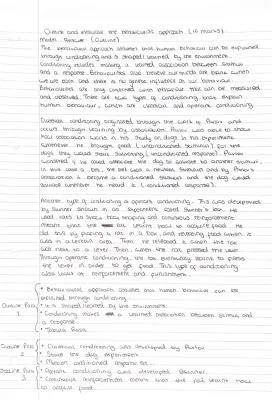 Outline and evaluate the behaviourist approach (16 marks)
Model Answer (Outline)
The behaviourist approach assumes that human behaviour can be explained
through conditioning and is shaped learned by the environment.
Conditioning involves making a learned association between stimuli
and a response. Behaviourists also believe are born
we are born and there is no genetic influence on our behaviour.
Behaviourists are only concerned with behaviour that can be measured
and observed. There are two types of conditioning that explain
human behaviour, which are classical and operant conditioning.
Classical conditioning originated through the work of Pavlov and
occurs through learning by association. Pavlov was able to show
how association works in his study on dogs. In his experiment
whenever he brought food (unconditioned stimulus) for the
dogs they would start salivating (unconditioned response). Pavlov
wondered if he could the dog to salivate to another stimulus,
in this case a bell, the bell was a neutral stimulus and by
association it became a conditioned stimulus and the dog would
salivate whenever he heard it (conditioned response).
Another type of conditioning is operant conditioning. This was developed
by Skinner shown in an experiment called Skinner's box. He
used rats to show how shaping and continuous reinforcement
means that the rat learnt how to acquire food. He
did this by placing a rat in a box, and releasing food when it
was in a certain area. Then he released it when the rat
was next to a lever. Then when the rat pressed the lever
through operant conditioning, the rat eventually learns to press
the lever in order to get food. This type of conditioning
also looks at reinforcement and punishment.
• Behavioural approach assumes that human behaviour can be
explained through conditioning.
Outline Para 1
• It is shaped learned by the environment
• Conditioning makes a learned association between stimuli and
a response.
• Tabula Rasa
Outline Para 2
• Classical conditioning was developed by Pavlov
• State the dog experiment
• Mention conditioned response etc.
Outline Para 3
• Operant conditioning was developed Skinner.
• Continuous reinforcement means that the rat learnt how
to acquire food.